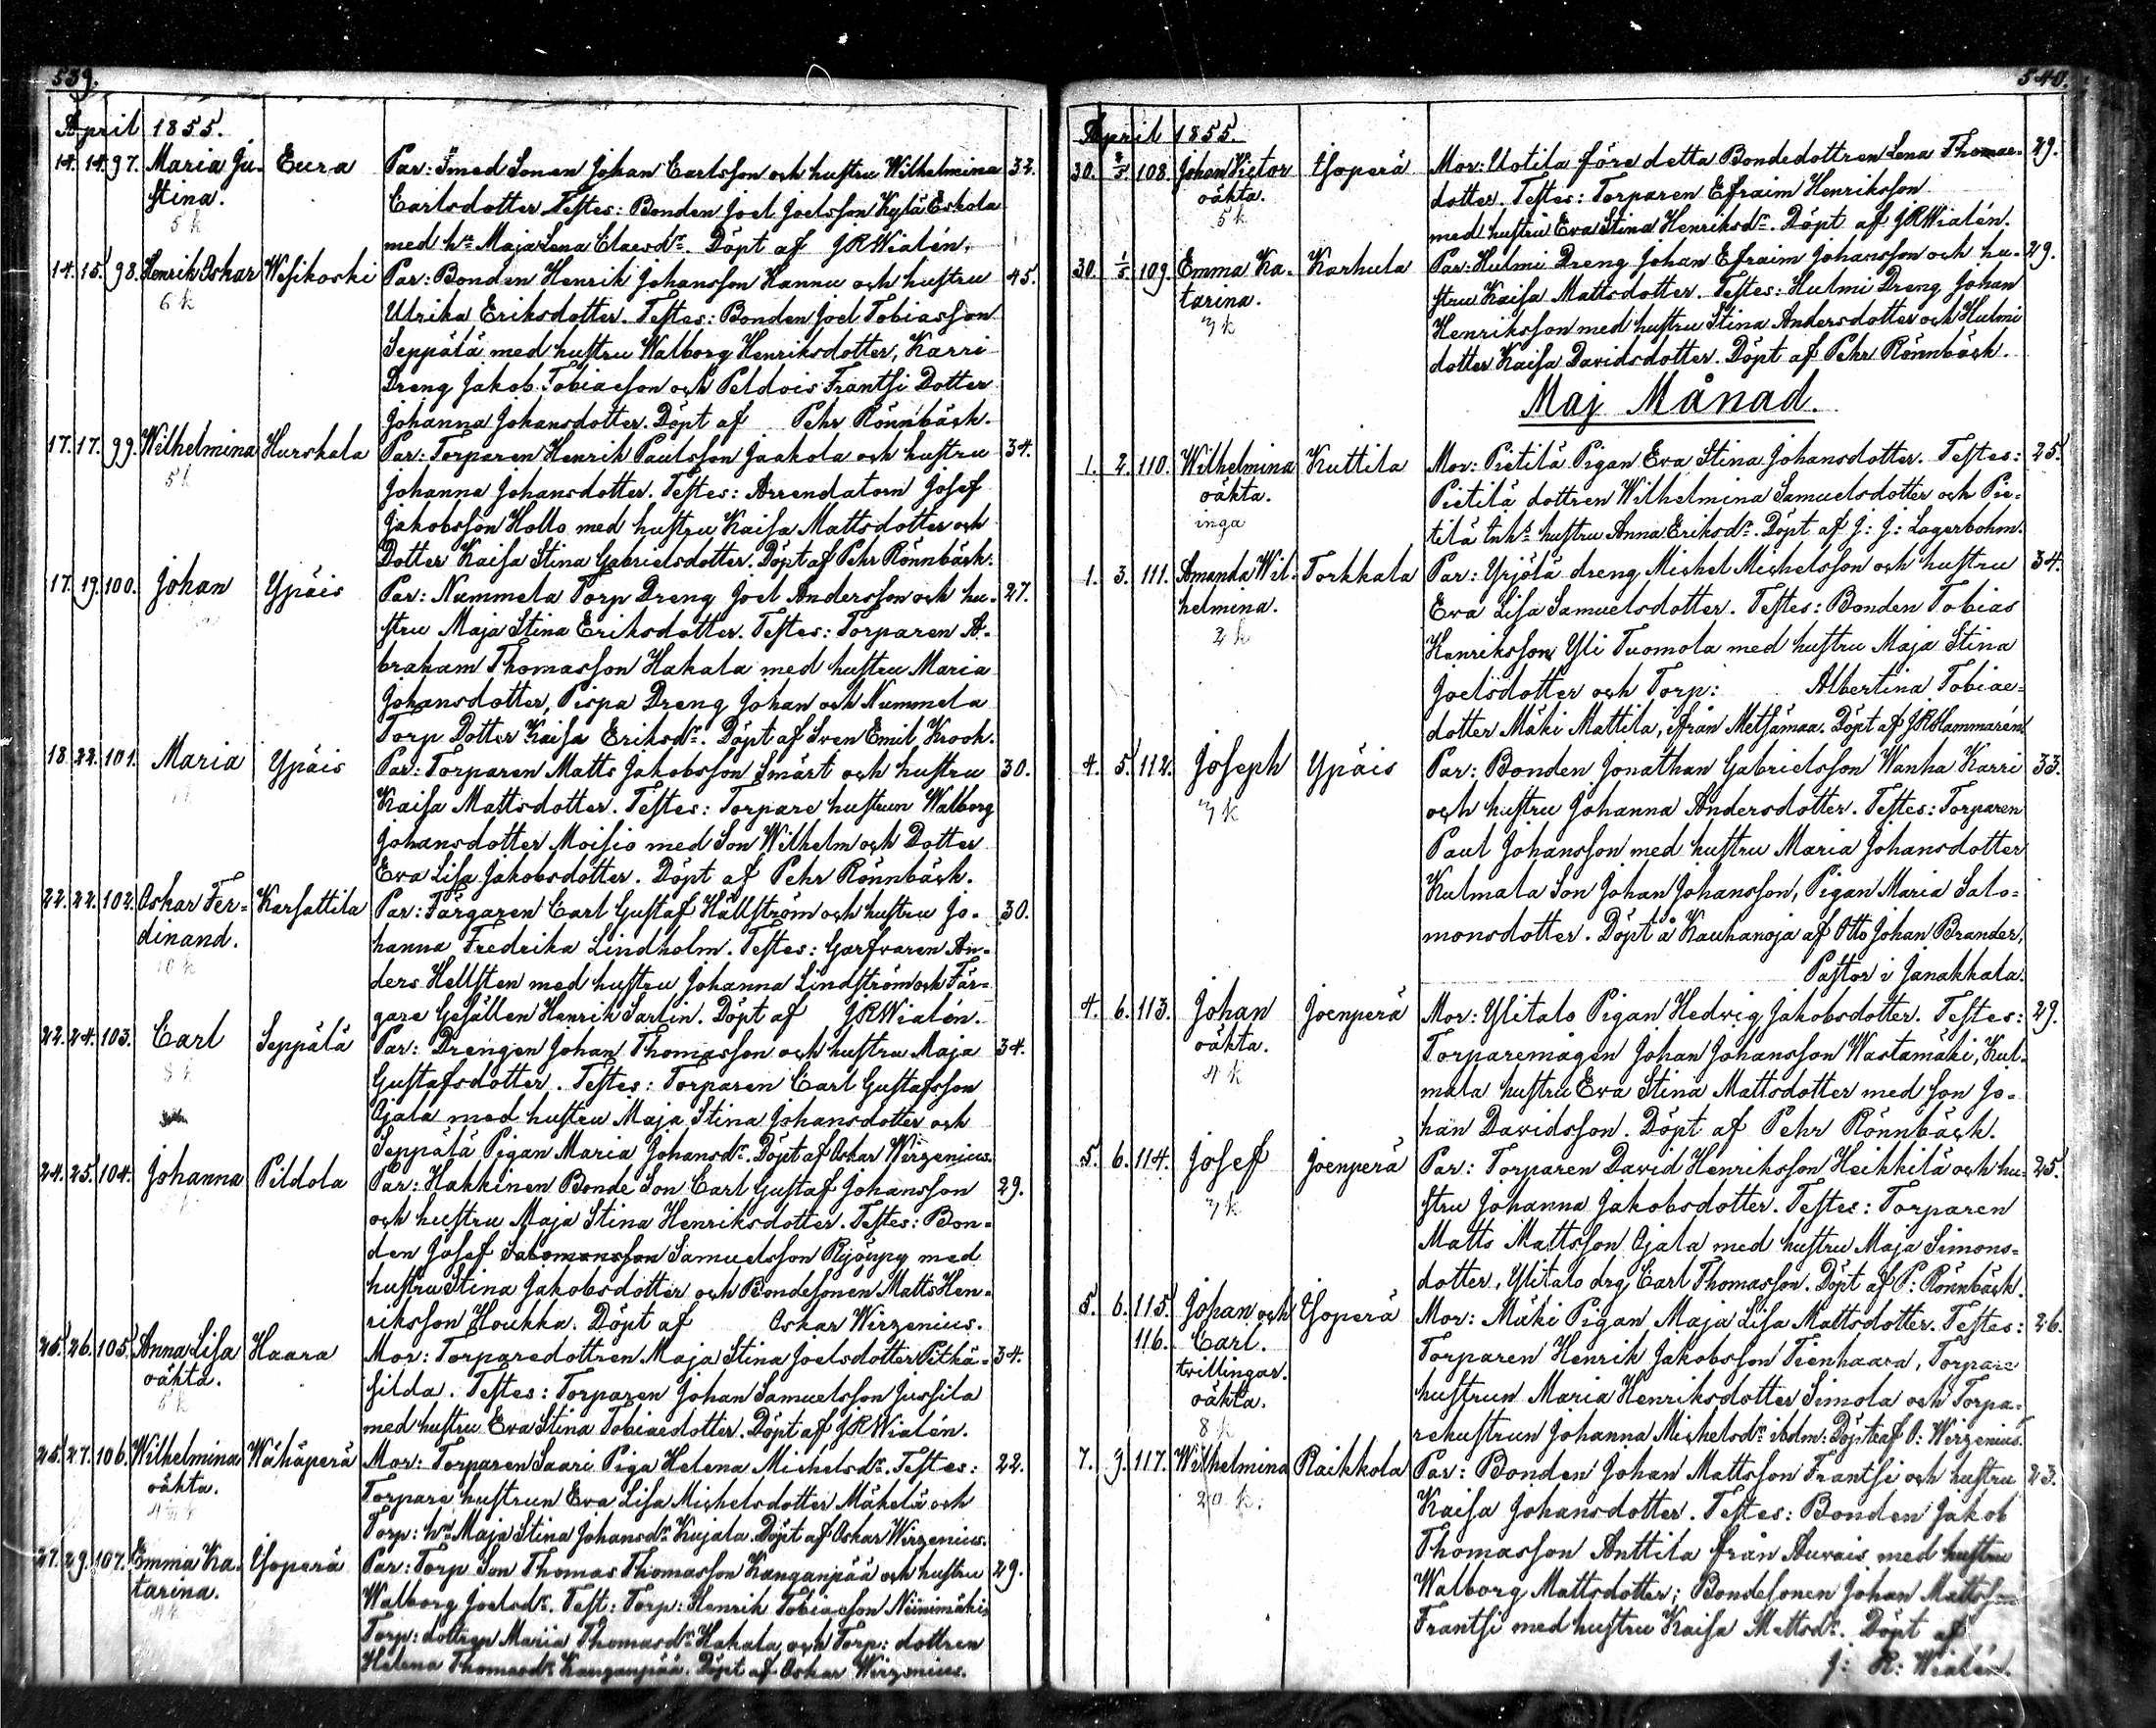 539.
April 1855.
14. 14. 97. Maria Ju- Eura Par: Smed Sonen Johan Carlsson och hustru Wilhelmina 32.
stina. Carlsdotter Testes: Bonden Joel Joelsson Kylä Eskola
5 k med hu Maja Lena Claesdr. Döpt af JRWialén.
14. 15. 98. Henrik Oskar Wesikoski Par: Bonden Henrik Johansson Hannu och hustru 45.
6 k Ulrika Eriksdotter. Testes: Bonden Joel Tobiasson
Seppälä med hustru Walborg Henriksdotter, Karri
Dreng Jakob Tobiasson och Peldois Frantsi Dotter
Johanna Johansdotter. Döpt af Pehr Rönnbäck.
17. 17. 99. Wilhelmina Hurskala Par: Torparen Henrik Paulsson Jaakola och hustru 34.
5 k Johanna Johansdotter. Testes: Arrendatorn Josef
Jakobsson Hollo med hustru Kaisa Mattsdotter och
Dotter Kaisa Stina Gabrielsdotter. Döpt af Pehr Rönnbäck.
17. 19. 100. Johan Ypäis Par: Nummela Torp Dreng Joel Andersson och hu- 27.
stru Maja Stina Eriksdotter. Testes: Torparen A-
braham Thomasson Hakala med hustru Maria
Johansdotter, Pispa Dreng Johan och Nummela
Torp Dotter Kaisa Eriksdr. Döpt af Sven Emil Krook.
18 22. 101. Maria Ypäis Par: Torparen Matts Jakobsson Smärt och hustru 30.
Kaisa Mattsdotter. Testes: Torpare hustrun Walborg
Johansdotter Moisio med Son Wilhelm och Dotter
Eva Lisa Jakobsdotter. Döpt af Pehr Rönnbäck.
22. 22. 102. Oskar Fer- Karsattila Par: Färgaren Carl Gustaf Hällström och hustru Jo- 30.
dinand. hanna Fredrika Lindholm. Testes: Garfvaren An-
10 k ders Hellsten med hustru Johanna Lindström och Fär-
gare Gesällen Henrik Sarlin. Döpt af JRWialén.
22. 24. 103. Carl Seppälä Par: Drengen Johan Thomasson och hustru Maja 34.
8 k Gustafsdotter. Testes: Torparen Carl Gustafsson
Ojala med hustru Maja Stina Johansdotter och
Seppälä Pigan Maria Johansdr. Döpt af Oskar Wirzenius.
24. 25. 104. Johanna Pildola Par: Hakkinen Bonde Son Carl Gustaf Johansson 29.
och hustru Maja Stina Henriksdotter. Testes: Bon-
den Josef Salomonsson Samuelsson Ryöppy med
hustru Stina Jakobsdotter och Bondesonen Matts Hen-
riksson Houkka. Döpt af Oskar Wirzenius.
25. 26. 105. Anna Lisa Haara Mor: Torparedottren Maja Stina Joelsdotter Pitkä- 34.
oäkta. silda. Testes: Torparen Johan Samuelsson Jussila
5 k med hustru Eva Stina Tobiaesdotter. Döpt af JRWialén.
25. 27. 106. Wilhelmina Wähäperä Mor: Torparen Saari Piga Helena Michelsdr. Testes: 22.
oäkta. Torpare hustrun Eva Lisa Michelsdotter Mäkelä och
Torp: hu Maja Stina Johansdr Kujala. Döpt af Oskar Wirzenius.
27. 29. 107. Emma Ka- Isoperä Par: Torp Son Thomas Thomasson Kanganpää och hustru 29.
tarina. Walborg Joelsdr. Test: Torp: Henrik Tobiaeson Niinimäki,
4 k Torp: dottren Maria Thomasdr Hakala och Torp: dottren
Helena Thomasdr Kanganpää. Döpt af Oskar Wirzenius.
540.
April 1855.
30. 2/5 108. Johan Victor Isoperä Mor: Uotila före detta Bondedottren Lena Thomae- 29.
oäkta. dotter. Testes: Torparen Efraim Henriksson
5 k med hustru Eva Stina Henriksdr. Döpt af JRWialén.
30. 1/5 109. Emma Ka- Karhula Par: Hulmi Dreng Johan Efraim Johansson och hu- 29.
tarina. stru Kaisa Mattsdotter. Testes: Hulmi Dreng Johan
3 k Henriksson med hustru Stina Andersdotter och Hulmi
dotter Kaisa Davidsdotter. Döpt af Pehr Rönnbäck.
Maj Månad.
1. 2. 110. Wilhelmina Kuttila Mor: Pietilä Pigan Eva Stina Johansdotter. Testes: 25.
oäkta. Pietilä dottren Wilhelmina Samuelsdotter och Pie-
inga tilä Inhs hustru Anna Eriksdr. Döpt af J: J: Lagerbohm.
1. 3. 111. Amanda Wil- Torkkala Par: Yrjölä dreng Michel Michelsson och hustru 34.
helmina. Eva Lisa Samuelsdotter. Testes: Bonden Tobias
2 k Henriksson Yli Tuomola med hustru Maja Stina
Joelsdotter och Torp: Albertina Tobiae-
dotter Mäki Mattila, ifrån Metsämaa. Döpt af JRHammarén.
4. 5. 112. Joseph Ypäis Par: Bonden Jonathan Gabrielsson Wanha Karri 33.
3 k och hustru Johanna Andersdotter. Testes: Torparen
Paul Johansson med hustru Maria Johansdotter
Kulmala Son Johan Johansson, Pigan Maria Salo-
monsdotter. Döpt å Kauhanoja af Otto Johan Brander,
Pastor i Janakkala.
4. 6. 113. Johan Joenperä Mor: Ylitalo Pigan Hedvig Jakobsdotter. Testes: 29.
oäkta. Torparemågen Johan Johansson Wastamäki, Kul-
4 k mala hustru Eva Stina Mattsdotter med son Jo-
han Davidsson. Döpt af Pehr Rönnbäck.
5. 6. 114. Josef Joenperä Par: Torparen David Henriksson Heikkilä och hu- 25.
3 k stru Johanna Jakobsdotter. Testes: Torparen
Matts Mattsson Ojala med hustru Maja Simons-
dotter, Ylitalo drg Carl Thomasson. Döpt af P: Rönnbäck.
5. 6. 115. Johan och Isoperä Mor: Mäki Pigan Maja Lisa Mattsdotter. Testes: 26.
116. Carl. Torparen Henrik Jakobsson Tienhaara, Torpare
tvillingar. hustrun Maria Henriksdotter Simola och Torpa-
oäkta. rehustrun Johanna Michelsdr ibdm: Döpte af O: Wirzenius.
8 k
7. 9. 117. Wilhelmina Raikkola Par: Bonden Johan Mattsson Frantsi och hustru 23.
20 k. Kaisa Johansdotter. Testes: Bonden Jakob
Thomasson Anttila från Auvais med hustru
Walborg Mattsdotter; Bondesonen Johan Mattsson
Frantsi med hustru Kaisa Mattsdr. Döpt af
J: R: Wialén.